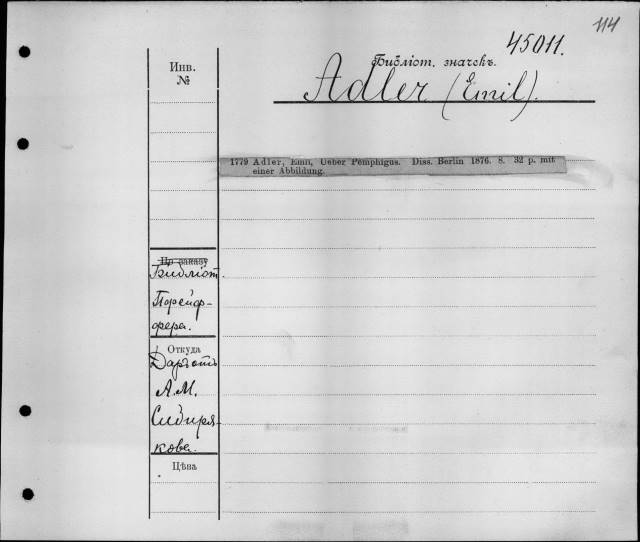 114
45011.
Библіот. значекъ.
Инв.
№
Adler (Emil).
1779 Adler, Emil, Ueber Pemphigus. Diss. Berlin 1876. 8. 32 p. mit
einer Abbildung.
Пр заказу
Библіот.
Порейф-
фера.
Откуда
Даръ отъ
А.М.
Сибиря-
кова.
Цѣна